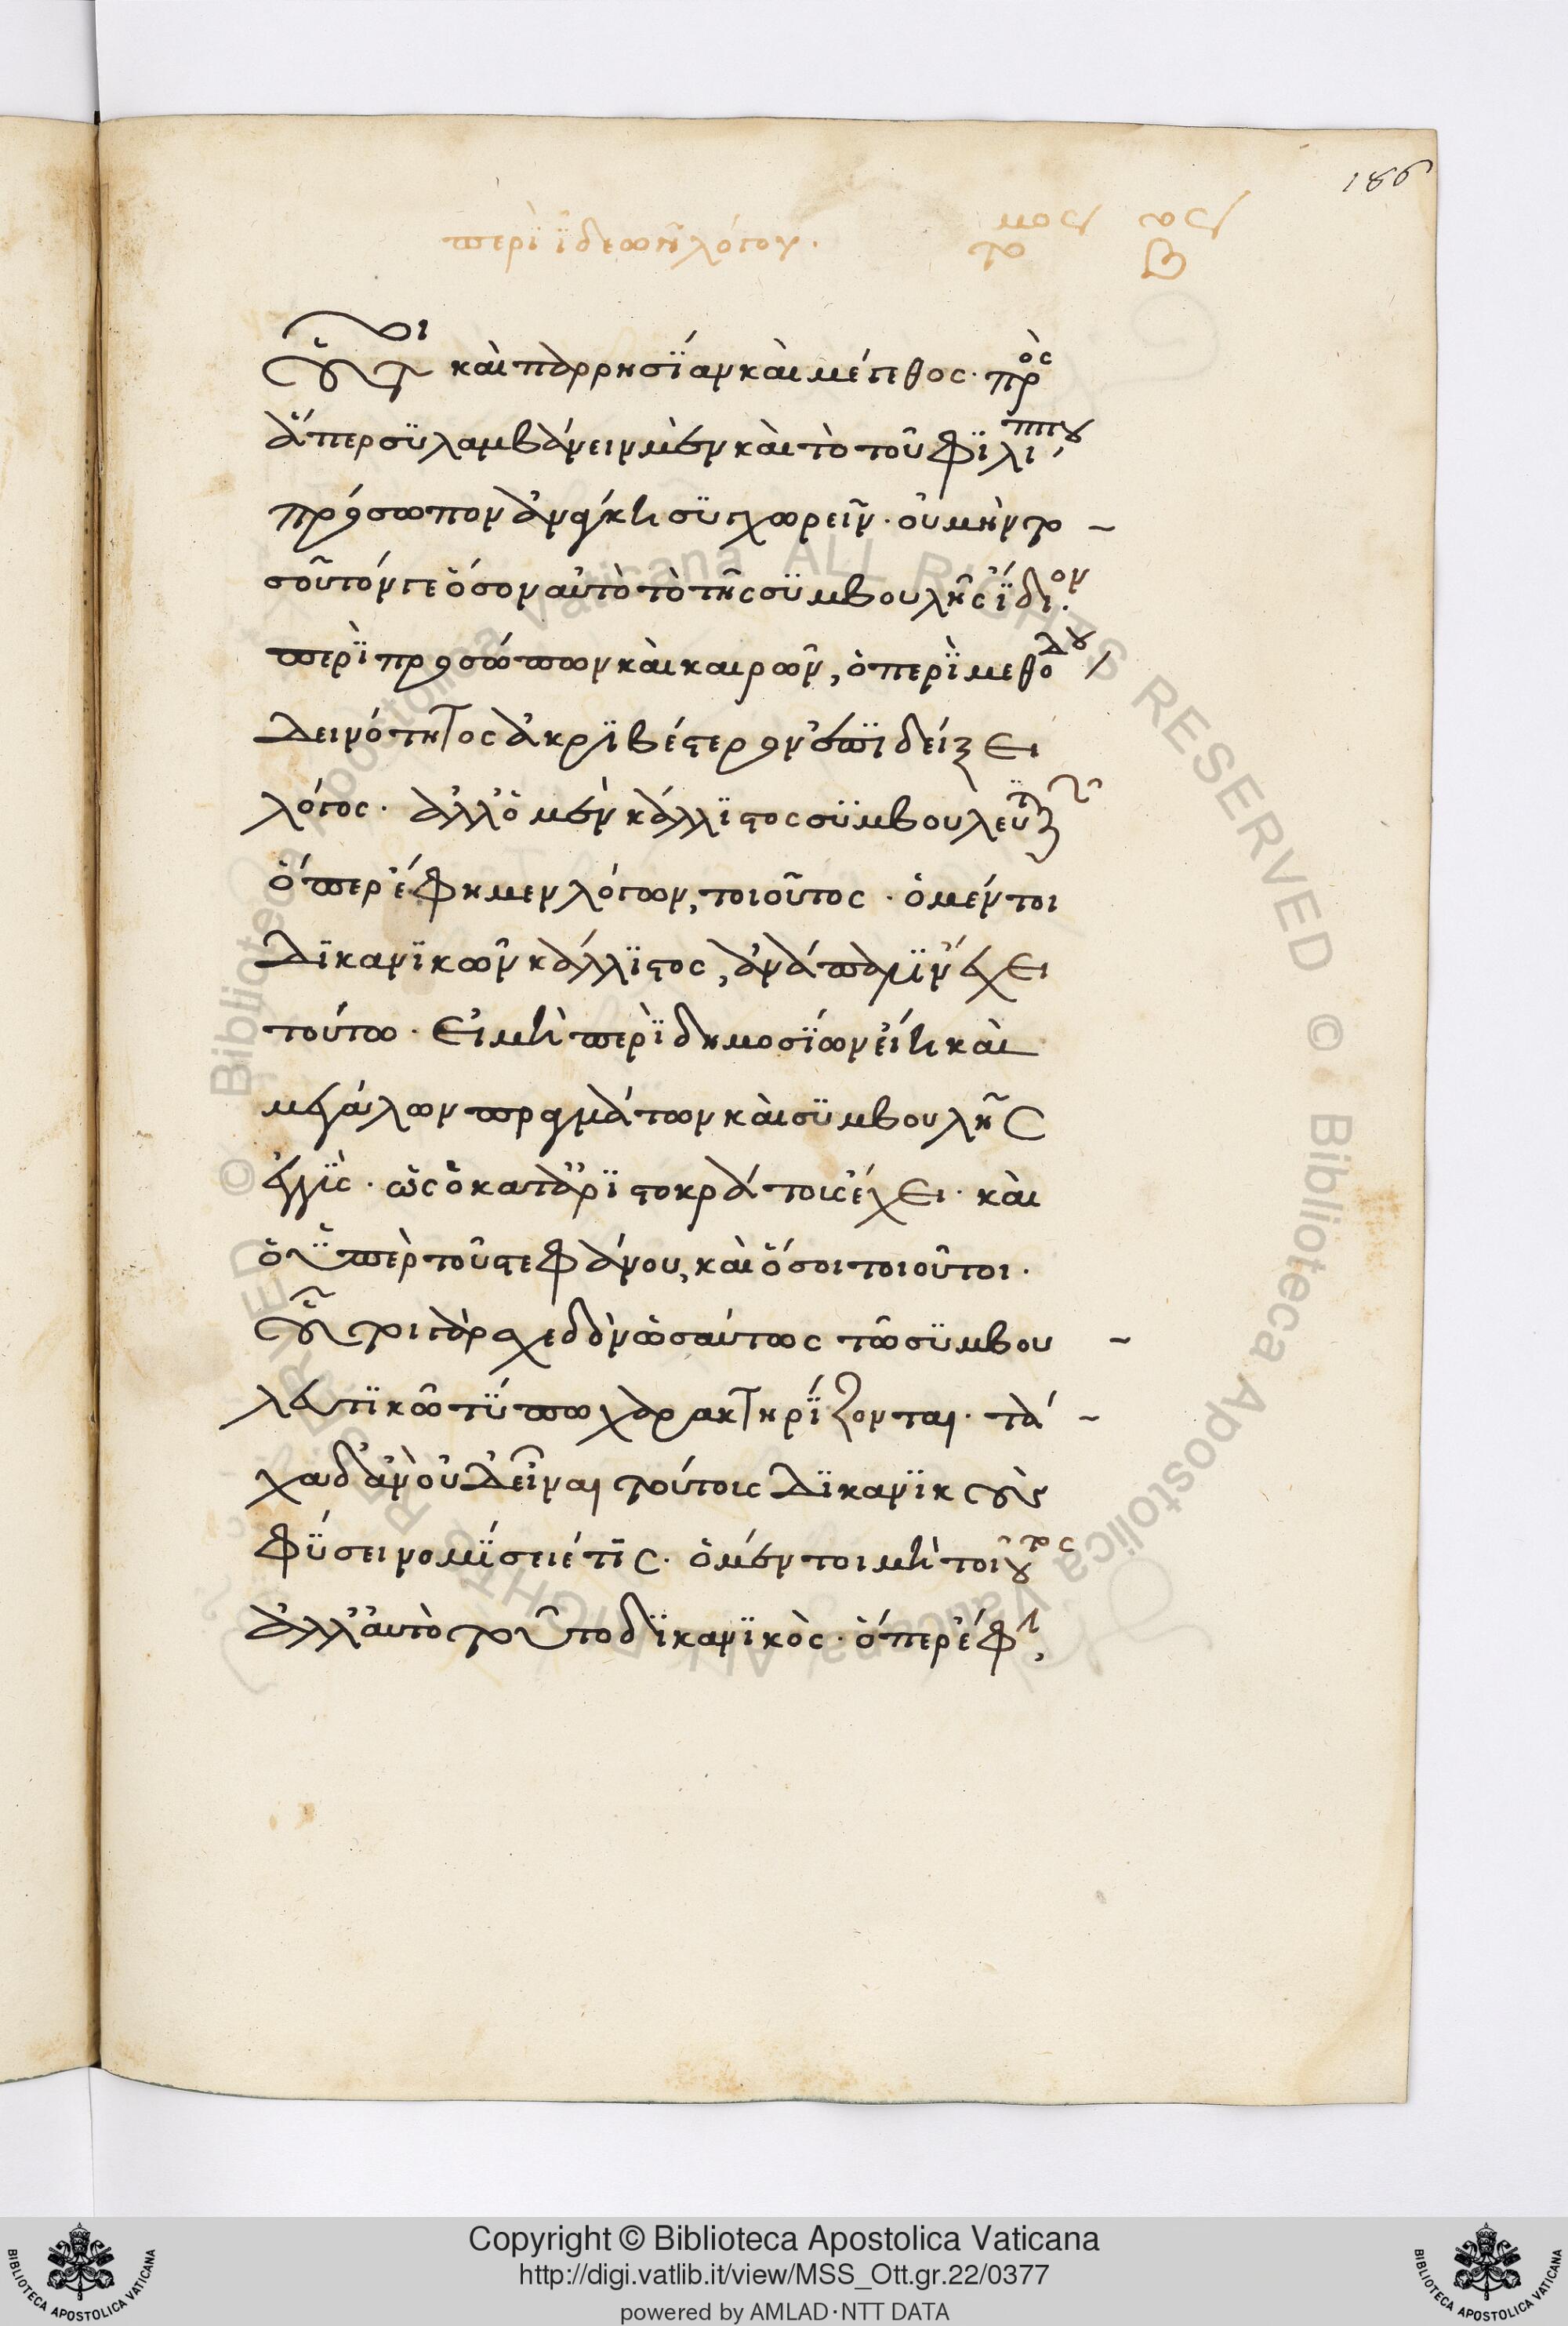 186
περὶ ἰδεῶν λόγου. τομος β
οὗτοι καὶ παρρησίαν καὶ μέγεθος· πρὸς
ἅπερ συλαμβάνειν μὲν καὶ τὸ τοῦ φιλίππου
πρόσωπον ἀνάγκη συγχωρεῖν· οὐ μὴν το
σοῦτόν γε ὅσον αὐτὸ τὸ τῆς συμβουλῆς ἴδιον·
περὶ προσώπων καὶ καιρῶν, ὁ περὶ μεθόδου
δεινότητος ἀκριβέστερον ἐπιδείξει
λόγος· ἀλλ' ὁ μὲν κάλλιστος συμβουλευτικῶν
ὅπερ ἔφημεν λόγων, τοιοῦτος· ὁ μέντοι
δικανικῶν κάλλιστος, ἀνάπαλιν ἔχει
τούτω· εἰ μὴ περὶ δημοσίων εἴη καὶ
μεγάλων πραγμάτων καὶ συμβουλῆς
ἐγγὺς· ὡς ὁ κατ' ἀριστοκράτους ἔχει· καὶ
ὁ ὑπὲρ τοῦ στεφάνου, καὶ ὅσοι τοιοῦτοι·
οὗτοι γὰρ σχεδὸν ὡσαύτως τῶ συμβου
λευτικῶ τύπω χαρακτηρίζονται· τά
χα δ' ἂν οὐδ' εἶναι τούτοις δικανικοὺς
φύσει νομίσειέ τις· ὁ μέντοι μὴ τοιοῦτος
ἀλλ' αὐτὸ τοῦτο δικανικὸς· ὅπερ ἔφην,
Copyright © Biblioteca Apostolica Vaticana
http://digi.vatlib.it/view/MSS_Ott.gr.22/0377
powered by AMLAD·NTT DATA